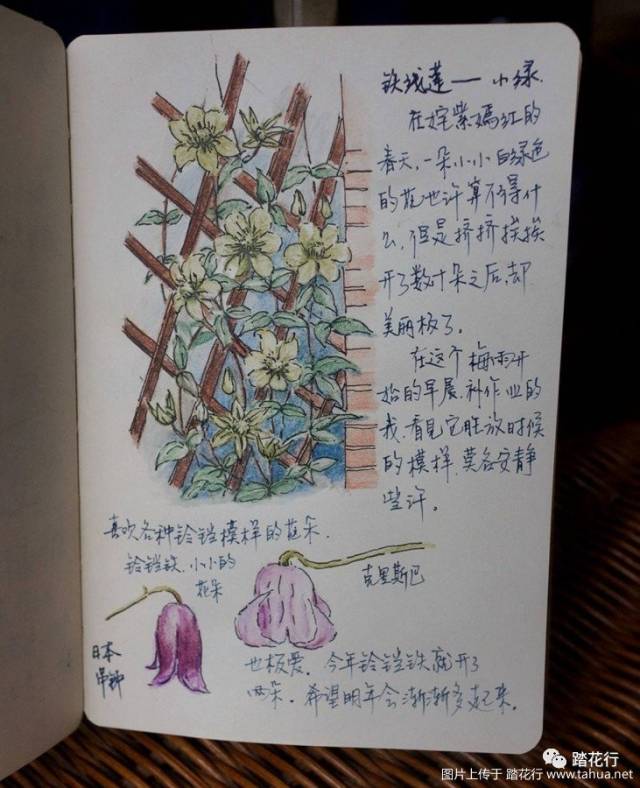 铁线莲——小绿.
在姹紫嫣红的
春天,一朵小小白绿色
的花也许算不得什
么,但是挤挤挨挨
开了数十朵之后,却
美丽极了。
在这个梅雨开
始的早晨.补作业的
我.看见它胜放时候
的模样.莫名安静
些许。
喜欢各种铃铛模样的花朵.
铃铛铁.小小的
花朵
克里斯巴
日本
吊钟
也极爱.今年铃铛铁就开了
两朵.希望明年会渐渐多起来.
踏花行
图片上传于 踏花行 www.tahua.net